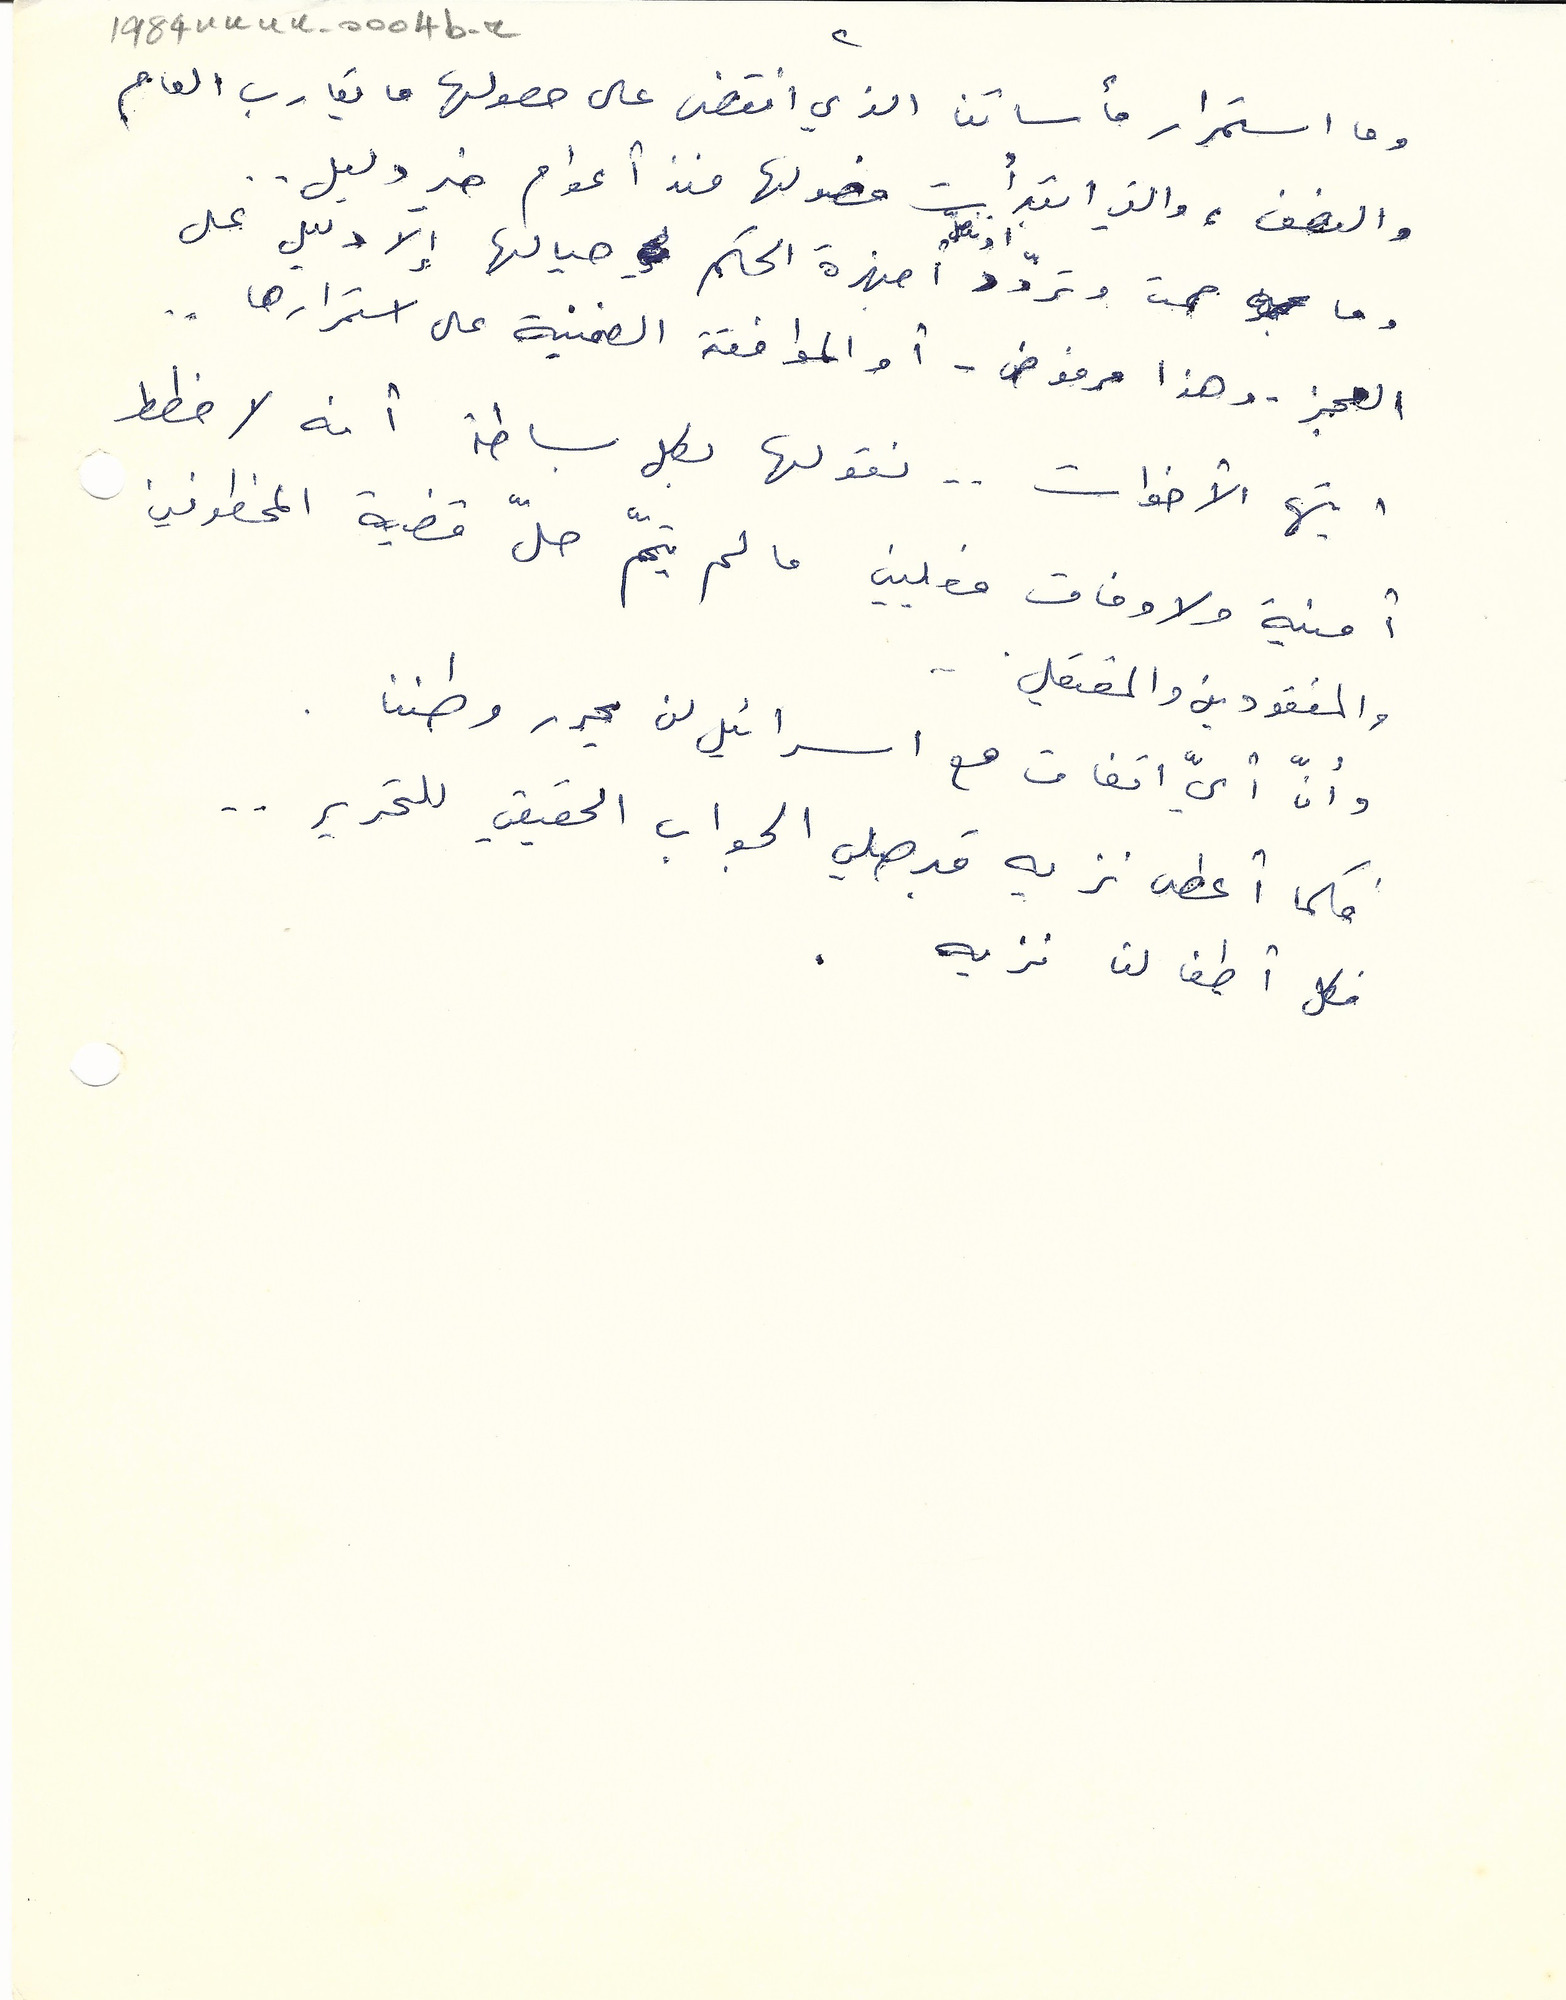 1984uuuu-0004b-r
٢
وما استمرار مأساتنا الذي انقضى على حصولها ما يقارب العام
والنصف، والتي ابتدأت فصولها منذ أعوام خير دليل..
وما صمت وتردّد أجهزة الحكم حيالها إلّا دليل على
العجز - وهذا مرفوض - أو الموافقة الضمنية على استمرارها ..
ايتها الأخوات .. نقولها بكل بساطة أنه لا خطط
أمنية ولا وفاق فعليين ما لم يتمّ حلّ قضية المخطوفين
والمفقودين والمعتقلين ..
وأنّ أيّ اتفاق مع اسرائيل لن يحرر وطننا .
فكما أعطى نزيه قبرصلي الجواب الحقيقي للتحرير ..
فكل أطفالنا نزيه .